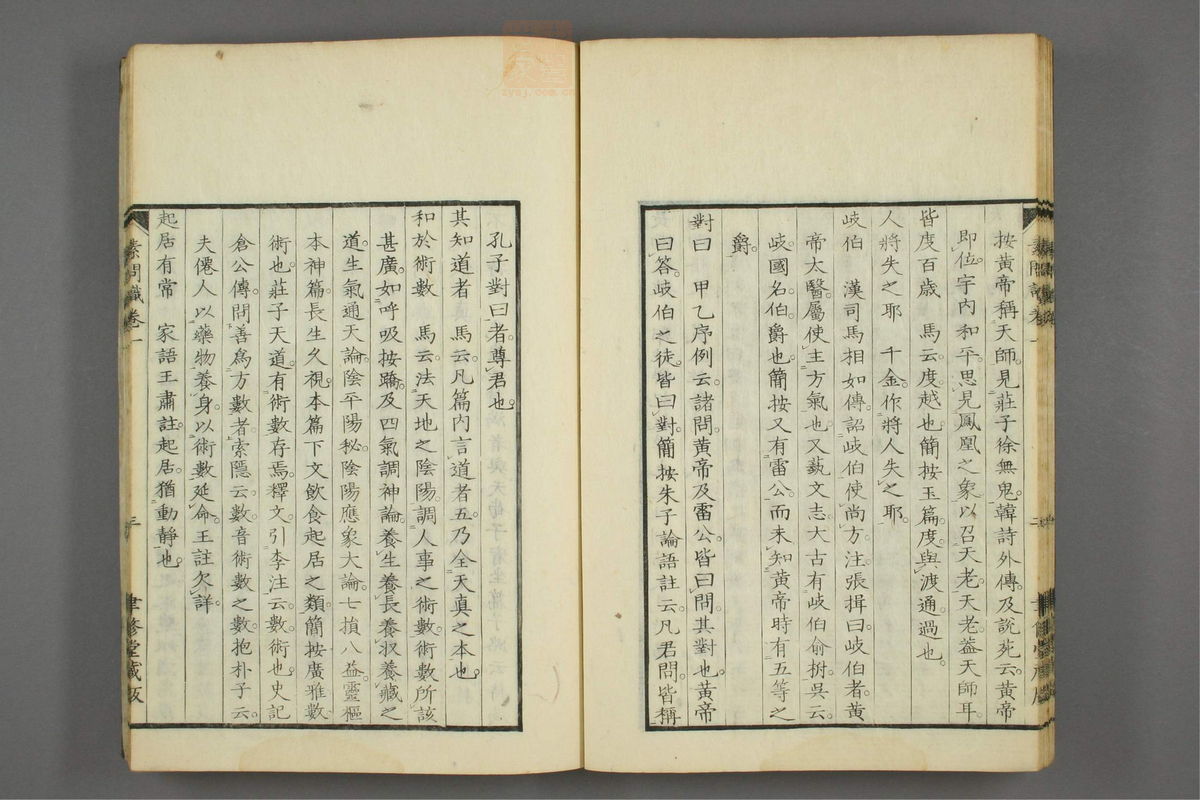 按黃帝稱天師。見莊子徐無鬼。韓詩外傳。及說苑云。黃帝
即位。宇內和平。思見鳳凰之象。以召天老。天老蓋天師耳
皆度百歲 馬云。度。越也。簡按玉篇。度與渡通。過也。
人將失之耶 千金。作將人失之耶。
岐伯 漢司馬相如傳。詔岐伯使尚方。注。張揖曰。岐伯者。黃
帝太醫。屬使主方氣也。又藝文志。大古有岐伯俞柎。吳云。
岐。國名。伯。爵也。簡按又有雷公。而未知黃帝時有五等之
爵。
對曰 甲乙序例云。諸問。黃帝及雷公。皆曰問。其對也。黃帝
曰答。岐伯之徒。皆曰對。簡按朱子論語註云。凡君問。皆稱
孔子對曰者。尊君也。
其知道者 馬云。凡篇內言道者五。乃全天真之本也。
和於術數 馬云。法天地之陰陽。調人事之術數。術數所該
甚廣。如呼吸按蹻。及四氣調神論。養生養長養收養藏之
道。生氣通天論。陰平陽秘。陰陽應象大論。七損八益。靈樞
本神篇。長生久視。本篇下文飲食起居之類。簡按廣雅。數
術也。莊子天道。有術數存焉。釋文。引李注云。數。術也。史記
倉公傳。問善為方數者。索隱云。數。音術數之數。抱朴子云。
夫僊人以藥物養身。以術數延命。王註欠詳。
起居有常 家語王肅註。起居。猶動靜也。
素問識卷一
三
聿修堂藏版
zysj.com.cn